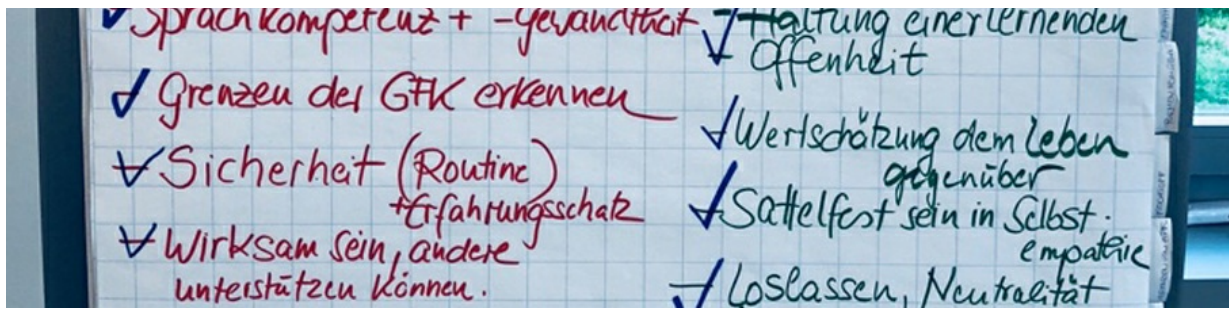 Sprachkompetenz + -gewandtheit
Grenzen der GFK erkennen
Sicherheit (Routine)
+Erfahrungsschatz
Wirksam sein, andere
unterstützen können.
Haltung einer lernenden
Offenheit
Wertschätzung dem Leben
gegenüber
Sattelfest sein in Selbst-
empathie
Loslassen, Neutralität